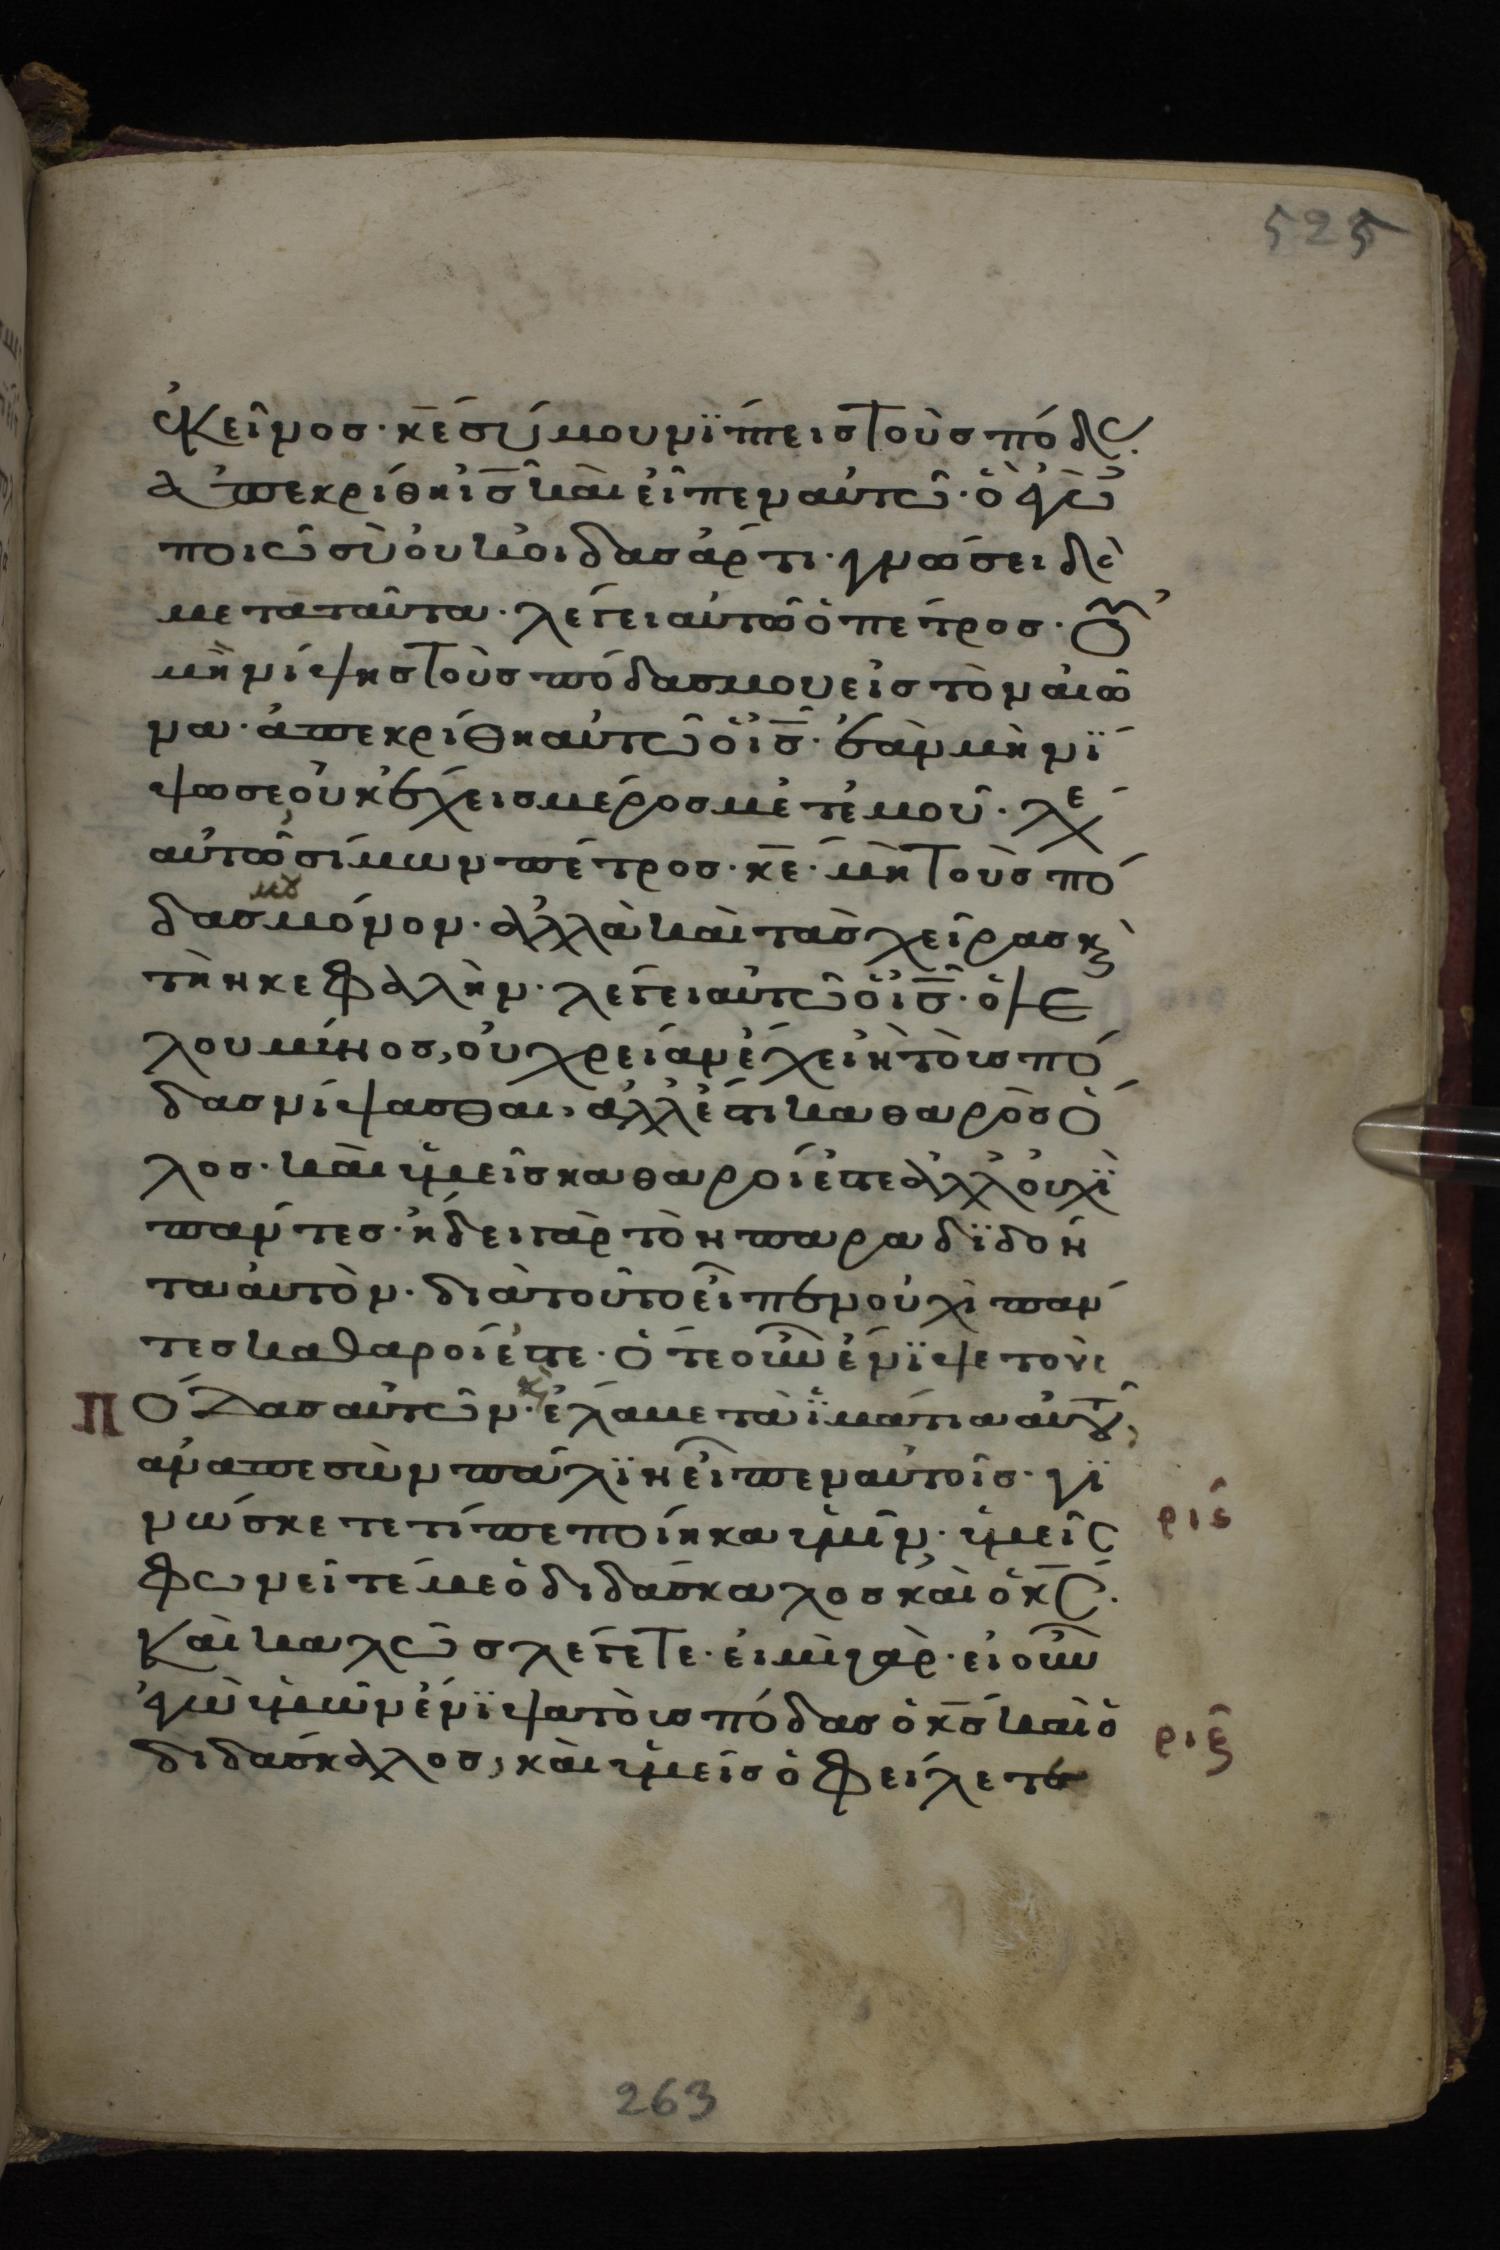 525
ἐκεῖνος· κ̅ε̅ σύ μου νίπτεις τοὺς πόδς·
ἀπεκρίθη ι̅ς̅ καὶ εἶπεν αὐτῶ· ὃ ἐγὼ
ποιῶ σὺ οὐκ οἶδας ἄρτι· γνώσει δὲ
μεταταῦτα· λέγει αὐτῶ ὁ πέτρος· οὐ
μὴ νίψης τοὺς πόδας μου εἰς τὸν αἰῶ
να· ἀπεκρίθη αὐτῶ ὁ ι̅ς̅· ἐὰν μὴ νί
ψω σε οὐκ ἔχεις μέρος μετ' ἐμοῦ· λέγε
αὐτῶ σίμων πέτρος· κ̅ε̅· μὴ τοὺς πό
δας μου μόνον· ἀλλὰ καὶ τὰς χεῖρας κ̀
τὴν κεφαλὴν· λέγει αὐτῶ ὁ ι̅ς̅· ὁ λε
λουμένος, οὐ χρείαν ἔχει ἢ τοὺς πό
δας νίψασθαι, ἀλλ' ἔστι καθαρὸς ὅ
λος· καὶ ὑμεῖς καθαροί ἐστε ἀλλ' οὐχὶ
πάντες· ἤδει γὰρ τὸν παραδιδόν
τα αὐτὸν· διὰ τοῦτο εἶπεν οὐχὶ πάν
τες καθαροί ἐστε· ὅτε οὖν ἔνιψε τοὺς
Π πόδας αὐτῶν· κ̀ ἔλαβε τὰ ἱμάτια αὐτοῦ,
ἀναπεσὼν πάλιν εἶπεν αὐτοῖς· γι
νώσκετε τί πεποίηκα ὑμῖν· ὑμεῖς
ρις
φωνεῖτέ με ὁ διδάσκαλος καὶ ὁ κ̅ς̅·
καὶ καλῶς λέγετε· εἰμὶ γὰρ· εἰ οὖν
ἐγὼ ὑμῶν ἔνιψα τοὺς πόδας ὁ κ̅ς̅ καὶ ὁ
ριζ
διδάσκαλος, καὶ ὑμεῖς ὀφείλετε
263